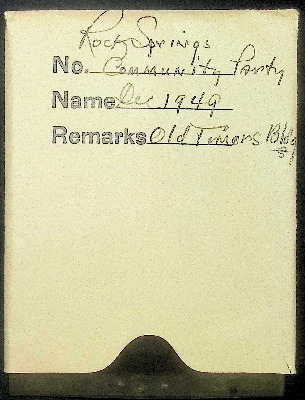 Rock Springs
No. Community Party
Name Dec 1949
Remarks Old Timers Bldg